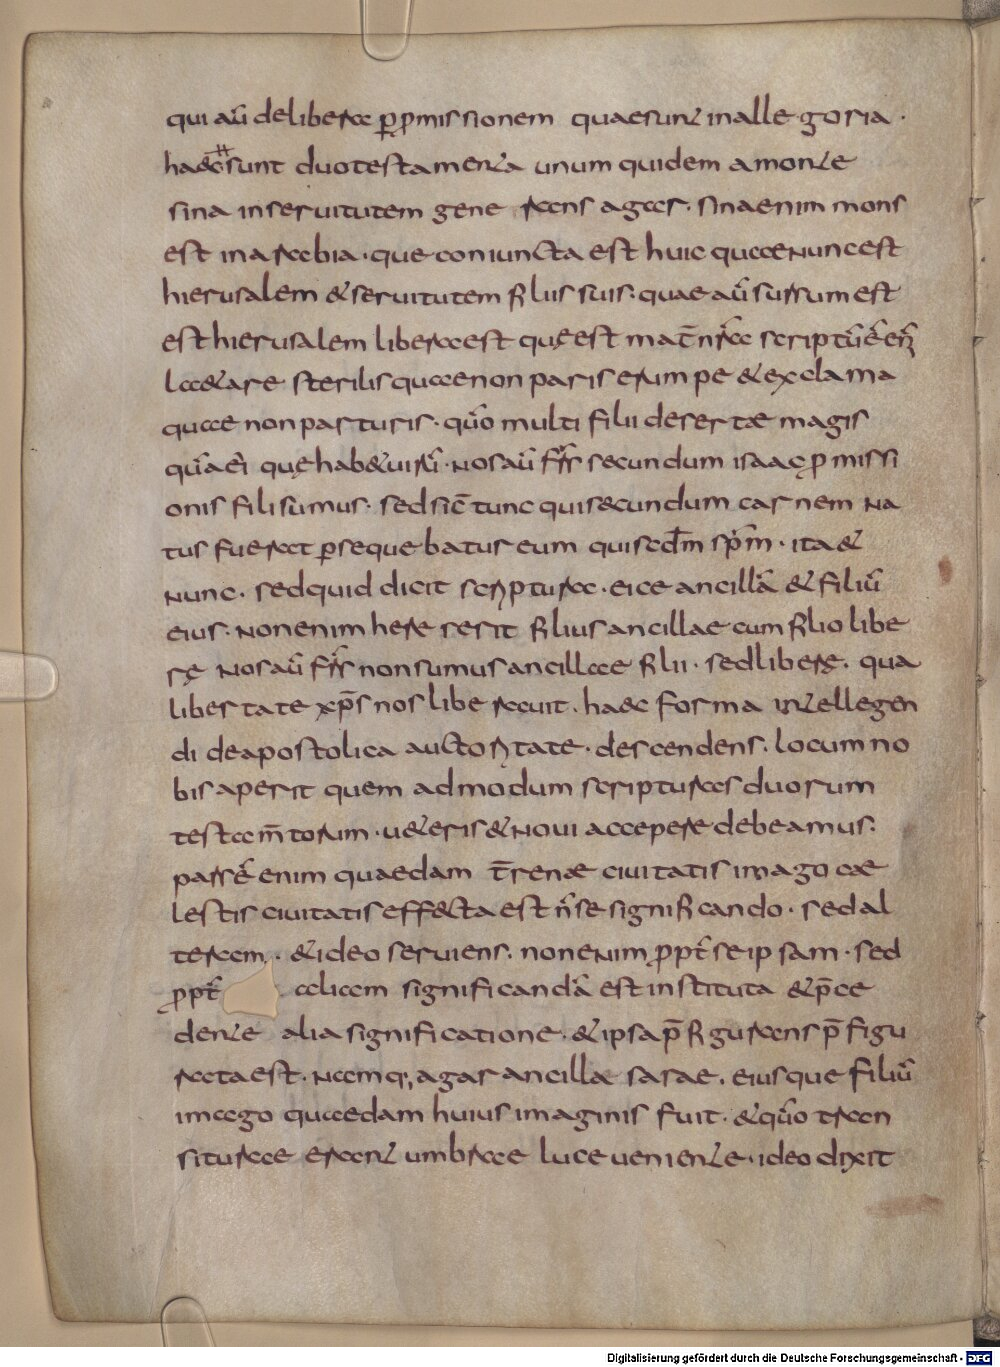 qui aū delibera ꝑ ꝓmissionem quaesunt inallegoria ·
haec sunt duotestamenta unum quidem amonte
sina inseruitutem gene rans agar. sinaenim mons
est inarabia · que coniuncta est huic quaenuncest
hierusalem & seruitutem filiis suis · quae aū sursum est
est hierusalem liberaest quęest mat̄ nr̄a scriptū ē enī
l&are sterilis quaenon paris erumpe & exclama
quae non parturis · qūo multi filii desertæ magis
quā ei quęhab& uirū · nos aū fr̄s secundum isaac ꝓmissi
onis filii sumus · sed sic̄ tunc quisecundum carnem na
tus fuerat ꝑsequebatur eum quisecd̄m sp̄m · ita &
nunc · sedquid dicit scriptura · eice ancillā & filiū
eius · nonenim here serit filius ancillae cum filio libe
rę nosaū fr̄s nonsumus ancillae filii · sedliberę · qua
libertate xp̄s nos liberauit · haec forma intellegen
di deapostolica auctoritate · descendens · locum no
bis aperit quem admodum scripturas duorum
testam̄torum · u&eris & noui accepere debeamus ·
parsē enim quaedam t̄renæ ciuitatis imago cæ
lestis ciuitatis eff&cta est n̄ se significando · sed al
teram · & ideo seruiens · nonenim ꝓpt̄ seipsam · sed
ꝓpt̄ aliam significandā est instituta & p̄ce
dente alia significatione · & ipsa p̄figurans p̄figu
rataest · namq; agar ancilla sarae · eiusque filiū
imago quaedam huius imaginis fuit · & qūo tran
siturae erant umbrae luce ueniente · ideo dixit
Digitalisierung gefördert durch die Deutsche Forschungsgemeinschaft - DFG